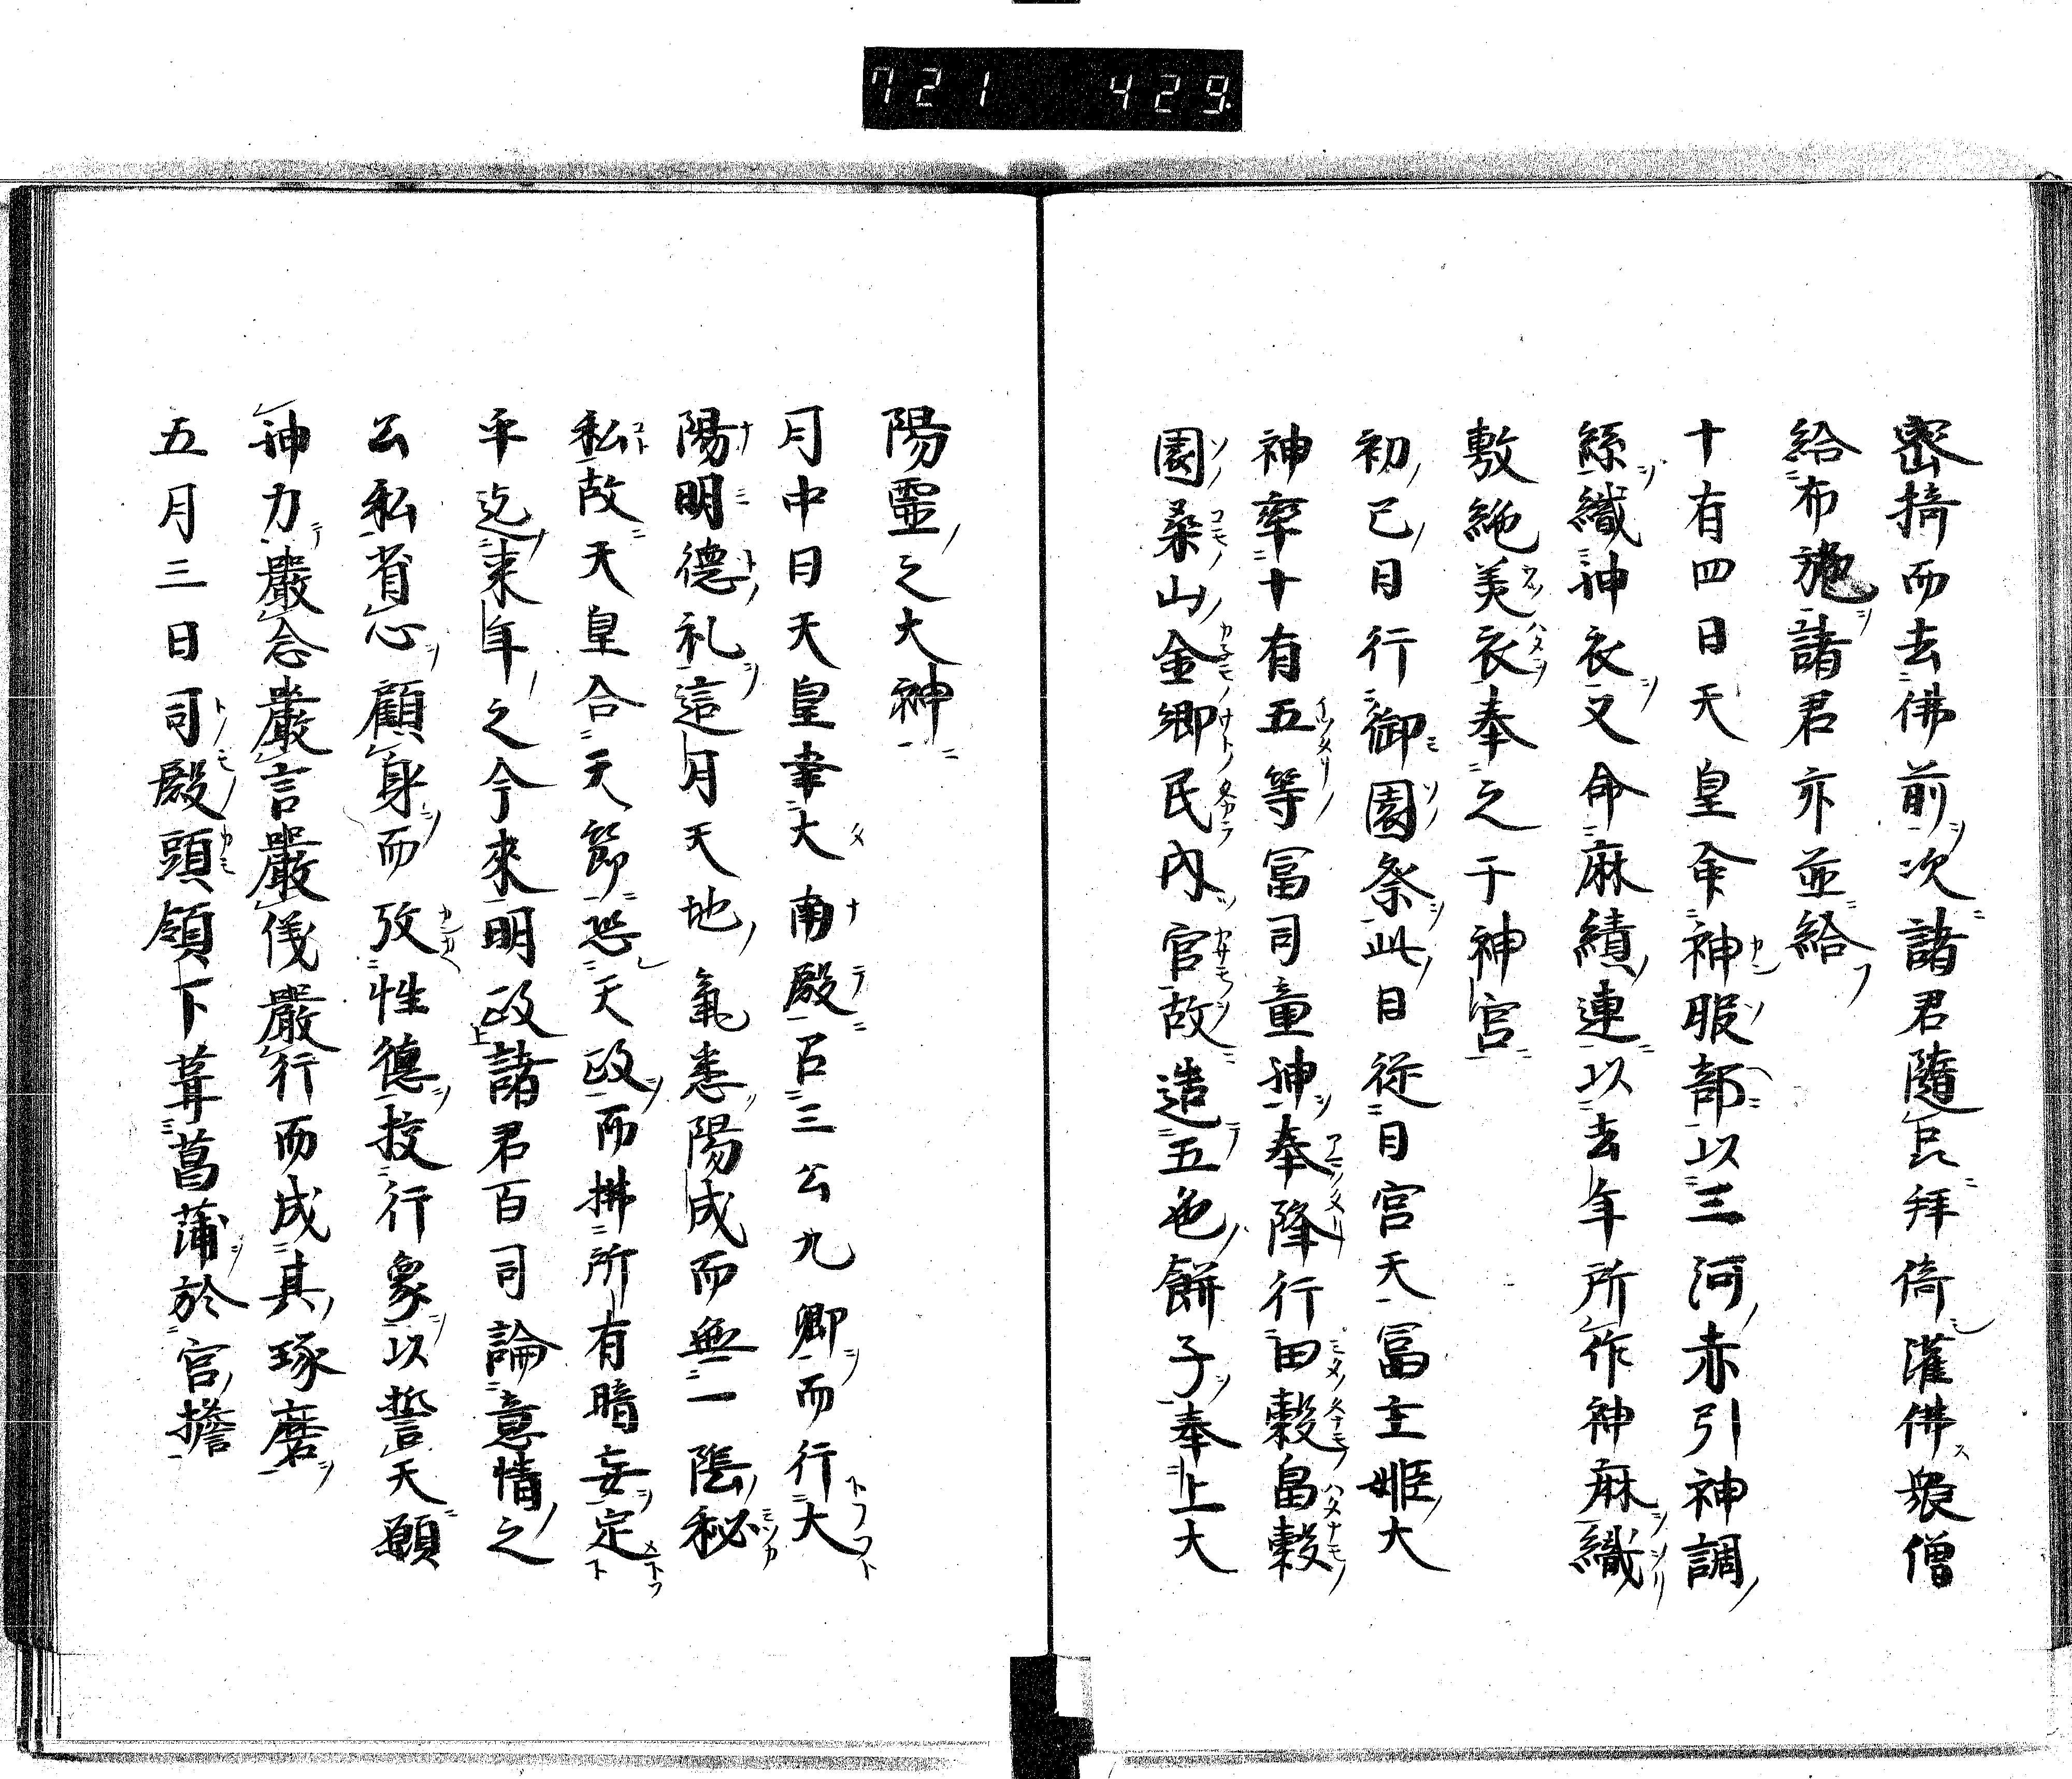 721 429
密掎而去佛前次諸君隨臣拜倚灌佛衆僧
給布施諸君亦並給
十有四日天皇命神服部以三河赤引神調
絲織神衣又命麻績連以去年所作神麻織
敷絁美衣奉之于神宮
初巳日行御園祭此日從日宮天冨主姬大
神率十有五等冨司童神奉降行田穀畠穀
園桑山金鄉民內官故造五色餅子奉上大
陽靈之大神
月中日天皇幸大南殿召三公九卿而行大
陽明德礼這月天地氣悉陽成而無一陰秘
私故天皇合天節恐天政而拂所有暗妄定
平迄来年之今來明政諸君百司論意情之
公私省心顧身而攷性德按行象以誓天願
神力嚴念嚴言嚴儀嚴行而成其琢磨
五月三日司殿頭領下葺菖蒲於宮擔